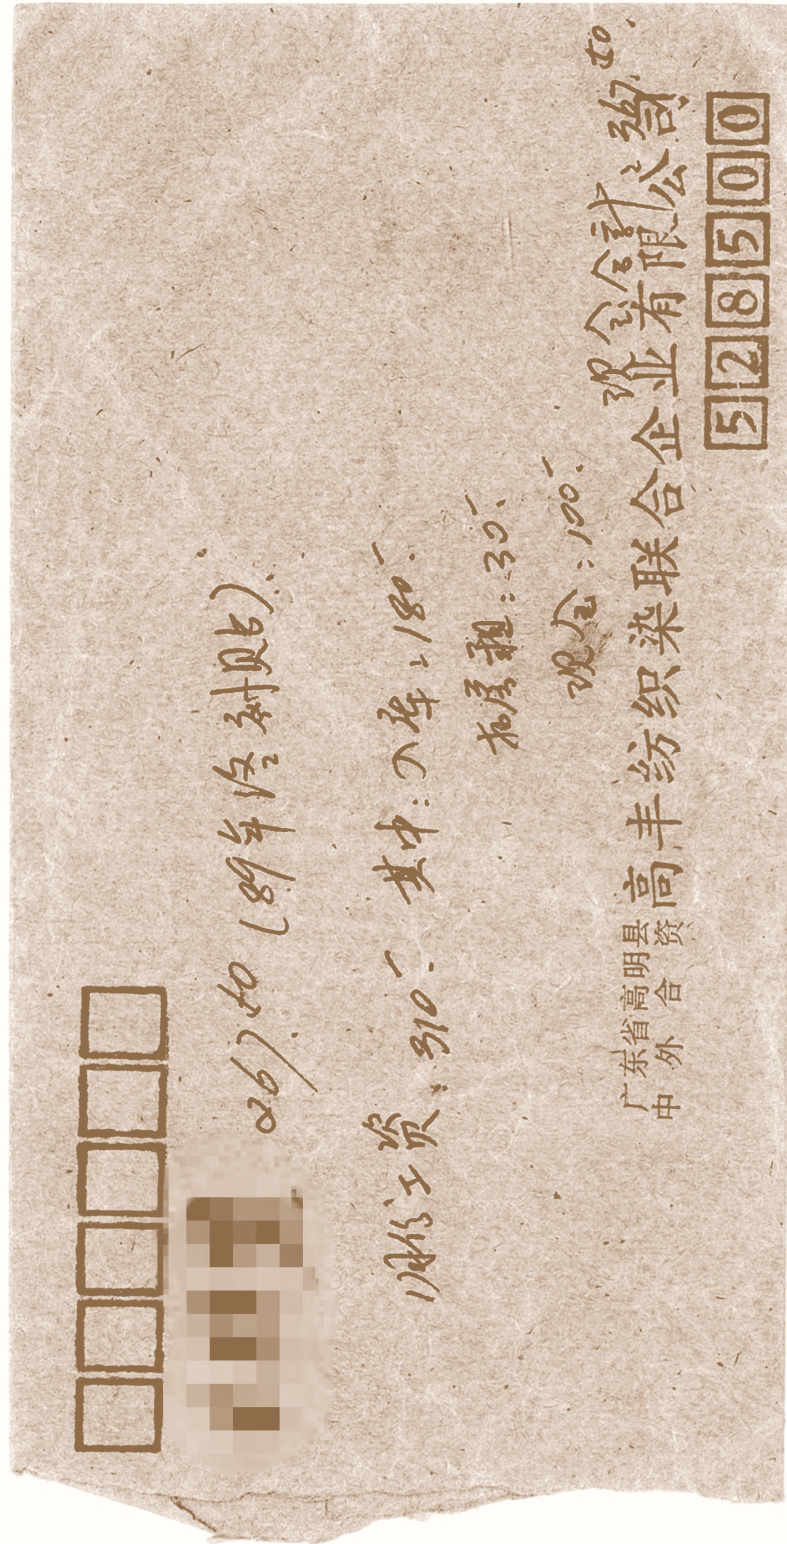 267.50 (89年终补贴).
1月份工资:310- 其中:入库:180-
扣房租:30-
现金:100-
现金合计:367.50.
广东省高明县
中外合资
高丰纺织染联合企业有限公司
528500